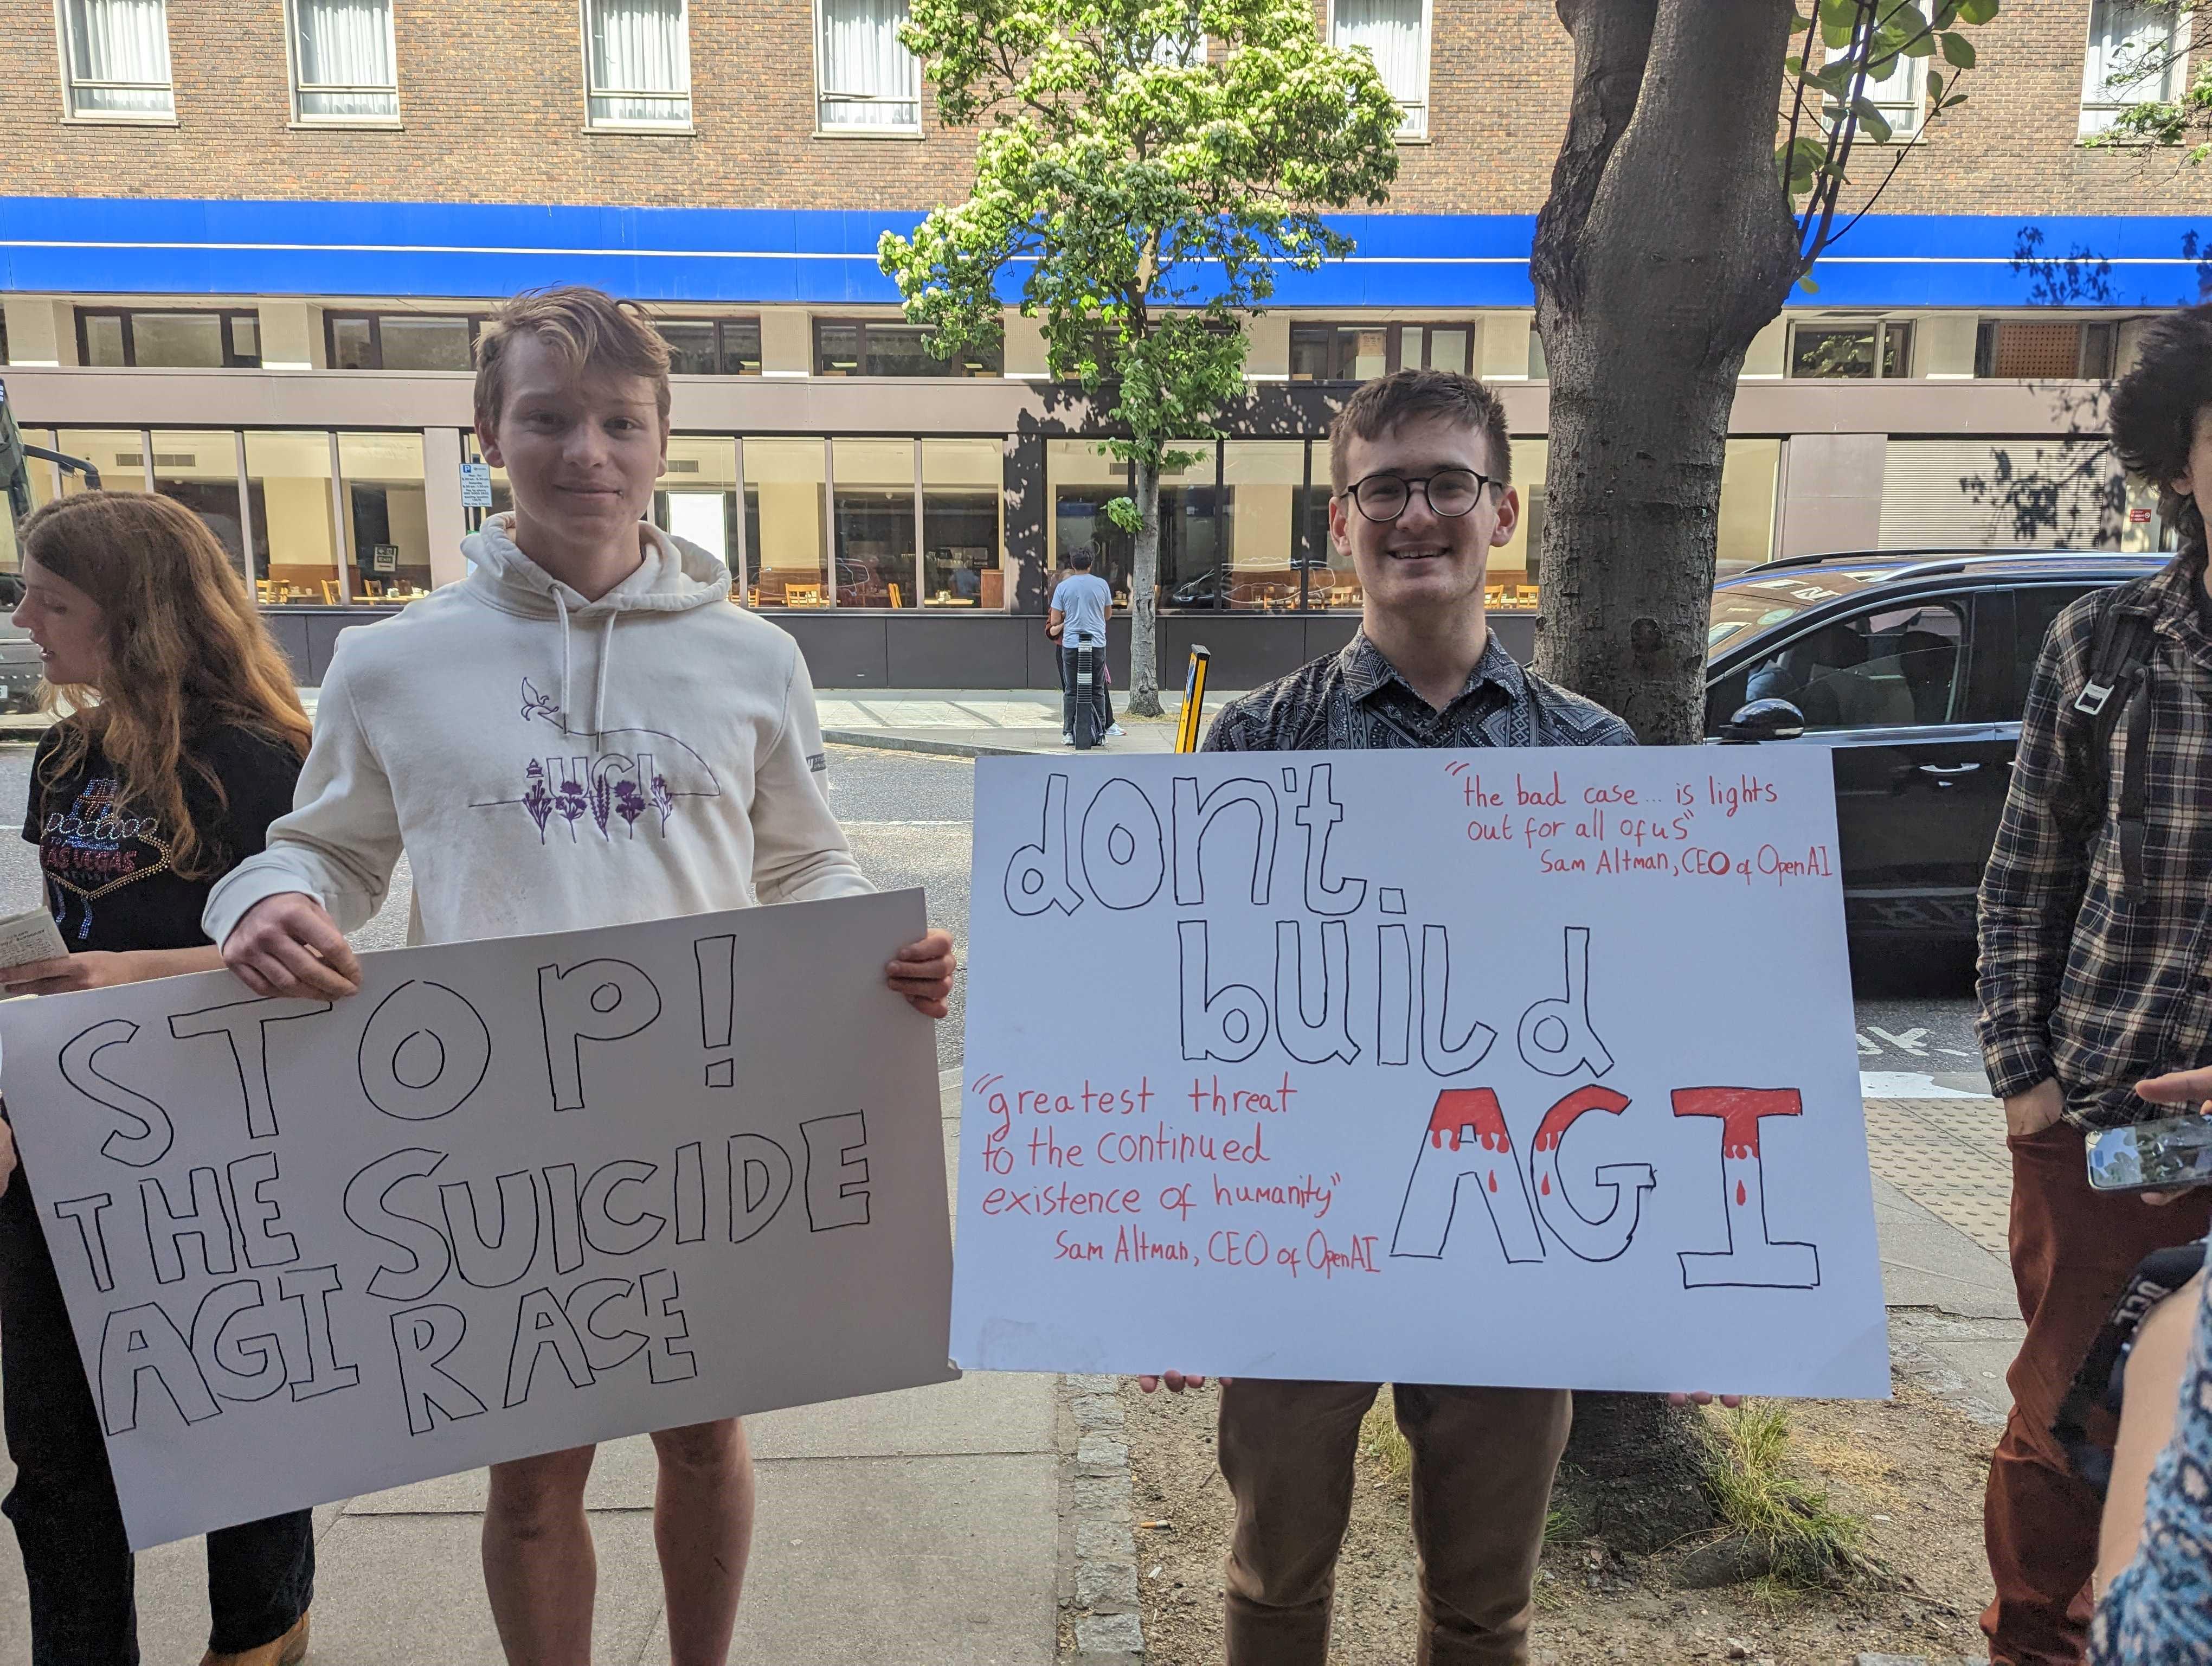 STOP!
THE SUICIDE
AGI RACE
don't.
build
AGI
"the bad case... is lights
out for all of us"
Sam Altman, CEO of OpenAI
"greatest threat
to the continued
existence of humanity"
Sam Altman, CEO of OpenAI
UCL
LAS VEGAS